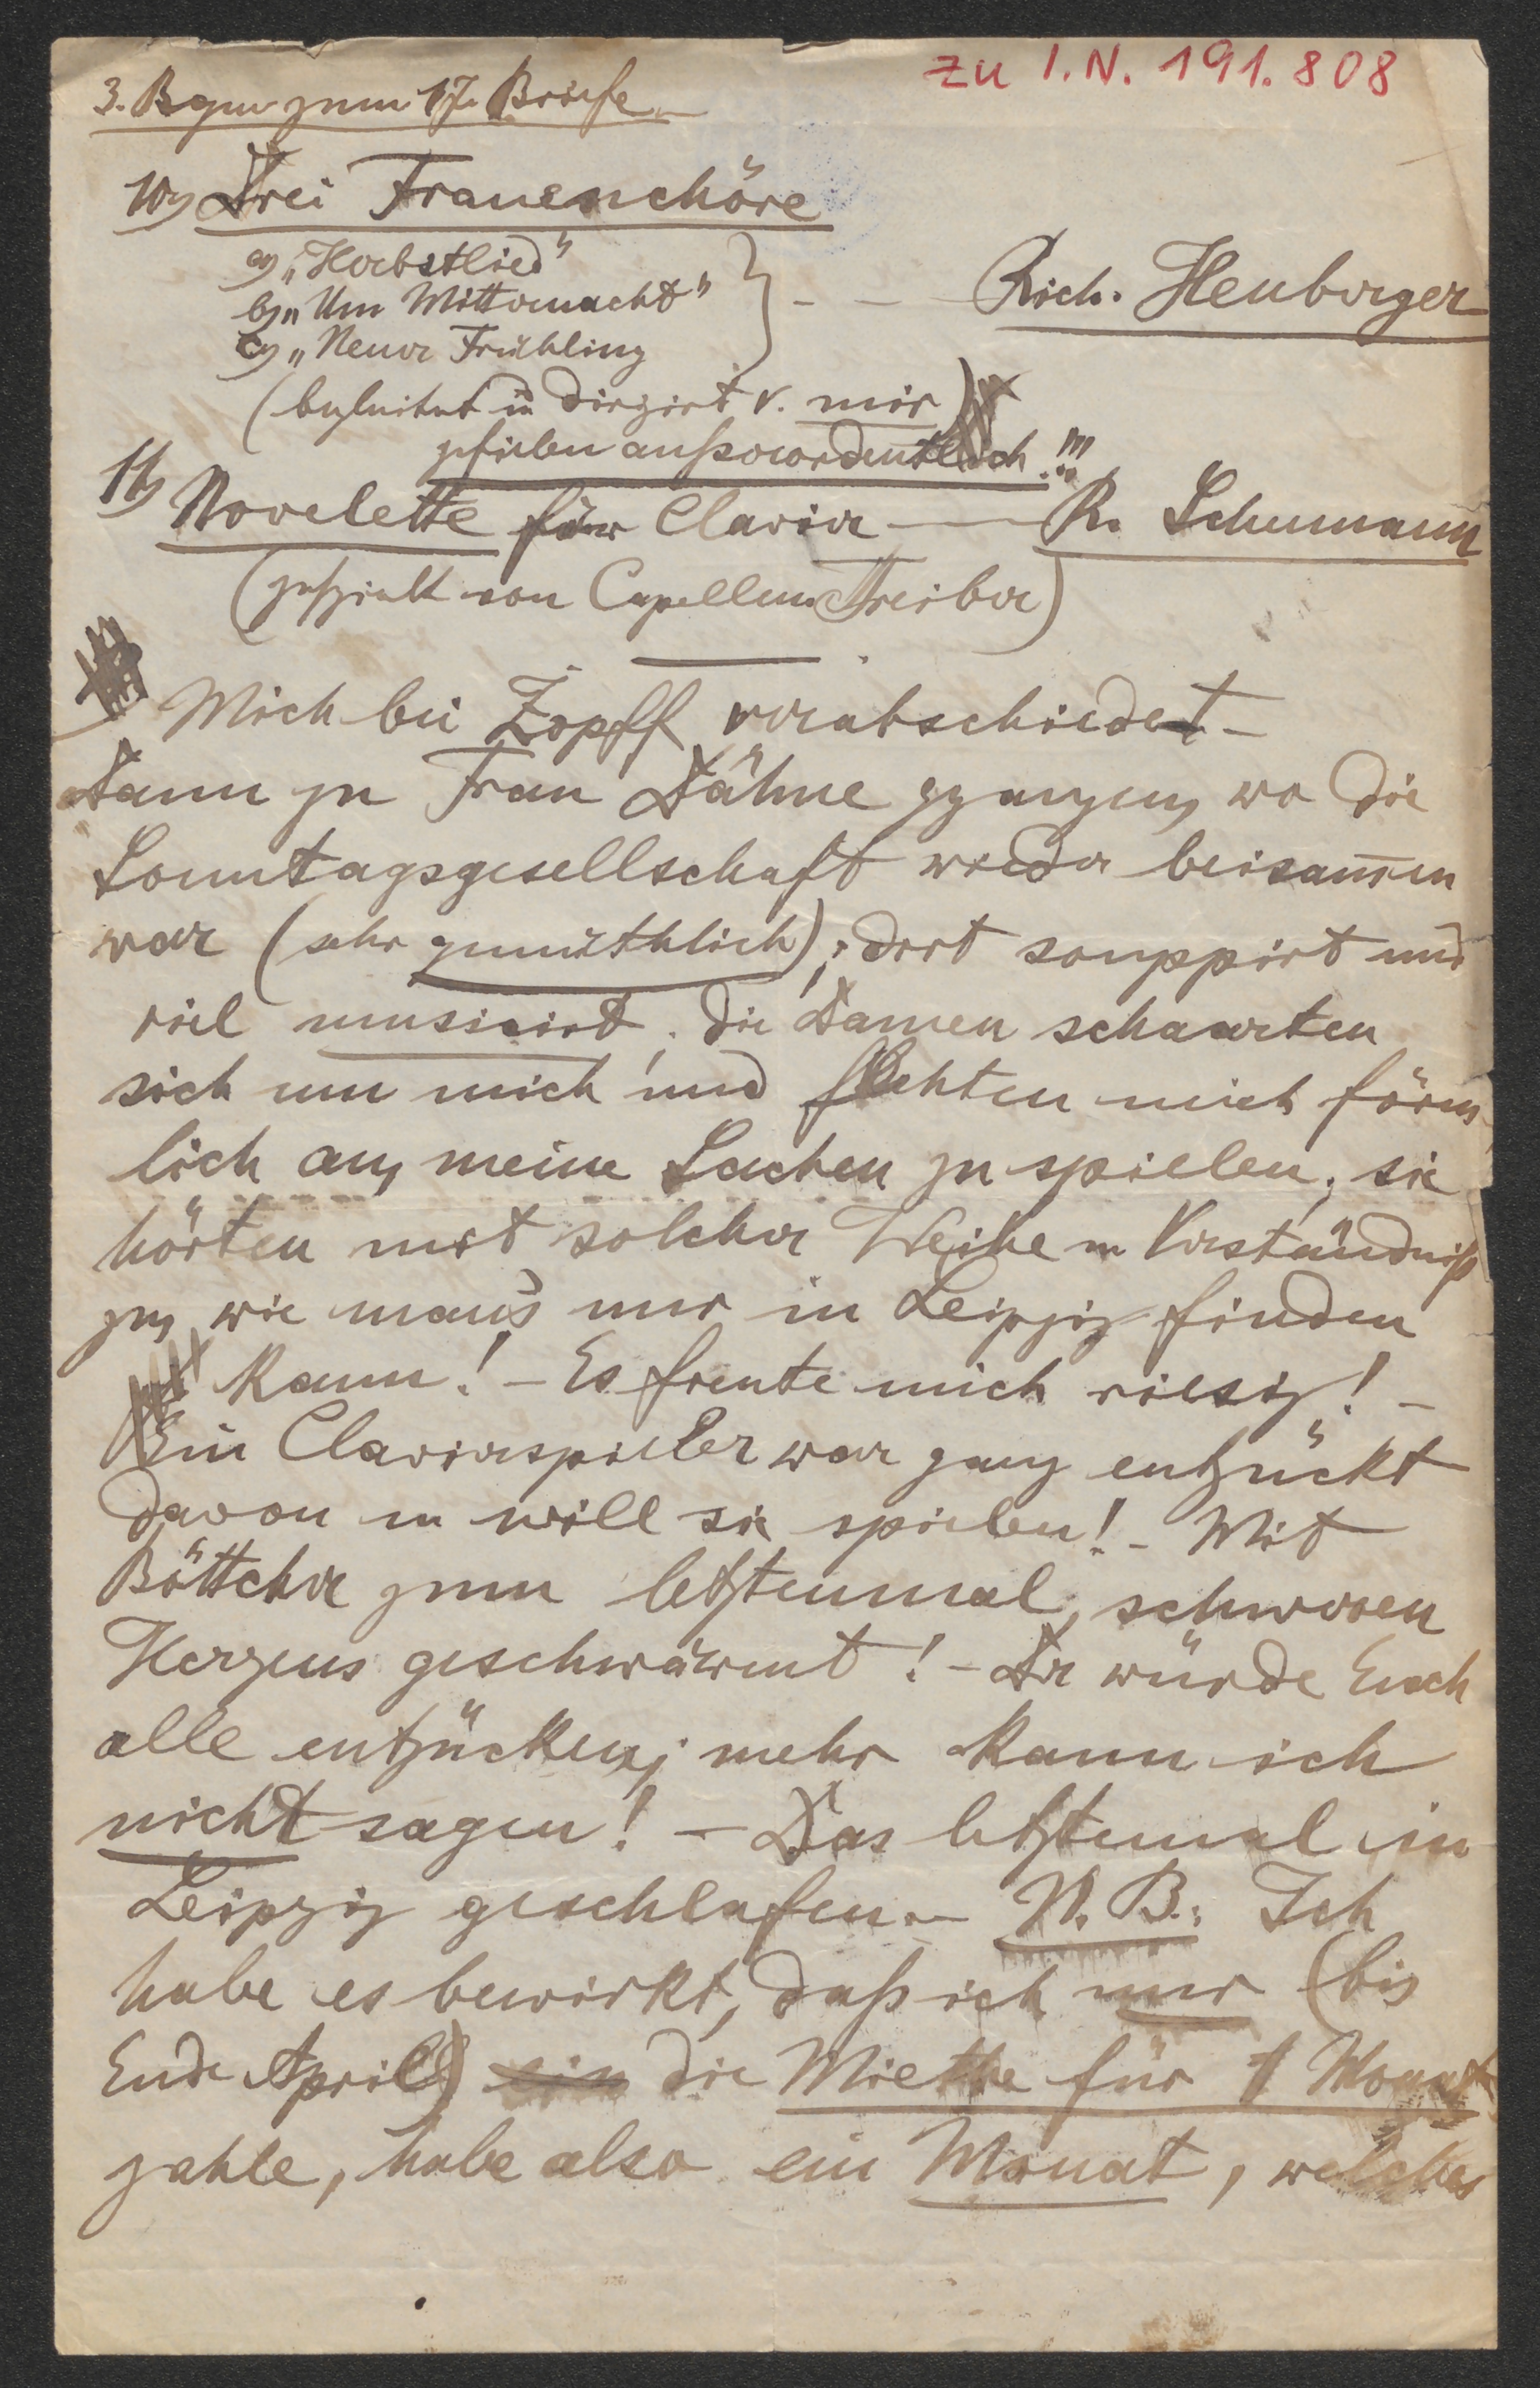 zu I.N. 191.808
3. Bogen zum 17. Briefe
10) Drei Frauenchöre
a) „Herbstlied"
b) „Um Mitternacht"
c) „Neuer Frühling
} - - Rich. Heuberger
(begleitet u dirigirt v. mir)
gefielen außerordentlich!!!
11) Novelette für Clavier — R. Schumann
(gespielt von Capellm. Treiber)
Mich bei Zopff verabschiedet –
dann zu Frau Dähne gegangen, wo die
Sonntagsgesellschaft wieder beisam̅en
war (sehr gemüthlich); dort souppirt und
viel musicirt; die Damen schaarten
sich um mich und flehten mich förm
lich an, meine Sachen zu spielen; sie
hörten mit solcher Weihe u Verständniß
zu, wie man's nur in Leipzig finden
kann! – Es freute mich riesig! –
Ein Clavierspieler war ganz entzückt
davon u will sie spielen! – Mit
Böttcher zum letztenmal, schweren
Herzens geschwärmt! – Er würde Euch
alle entzücken; mehr kann ich
nicht sagen! – Das letztemal in
Leipzig geschlafen. – N.B.: Ich
habe es bewirkt, daß ich nur (bis
Ende April) die Miethe für 1 Monat
zahle, habe also ein Monat, welches